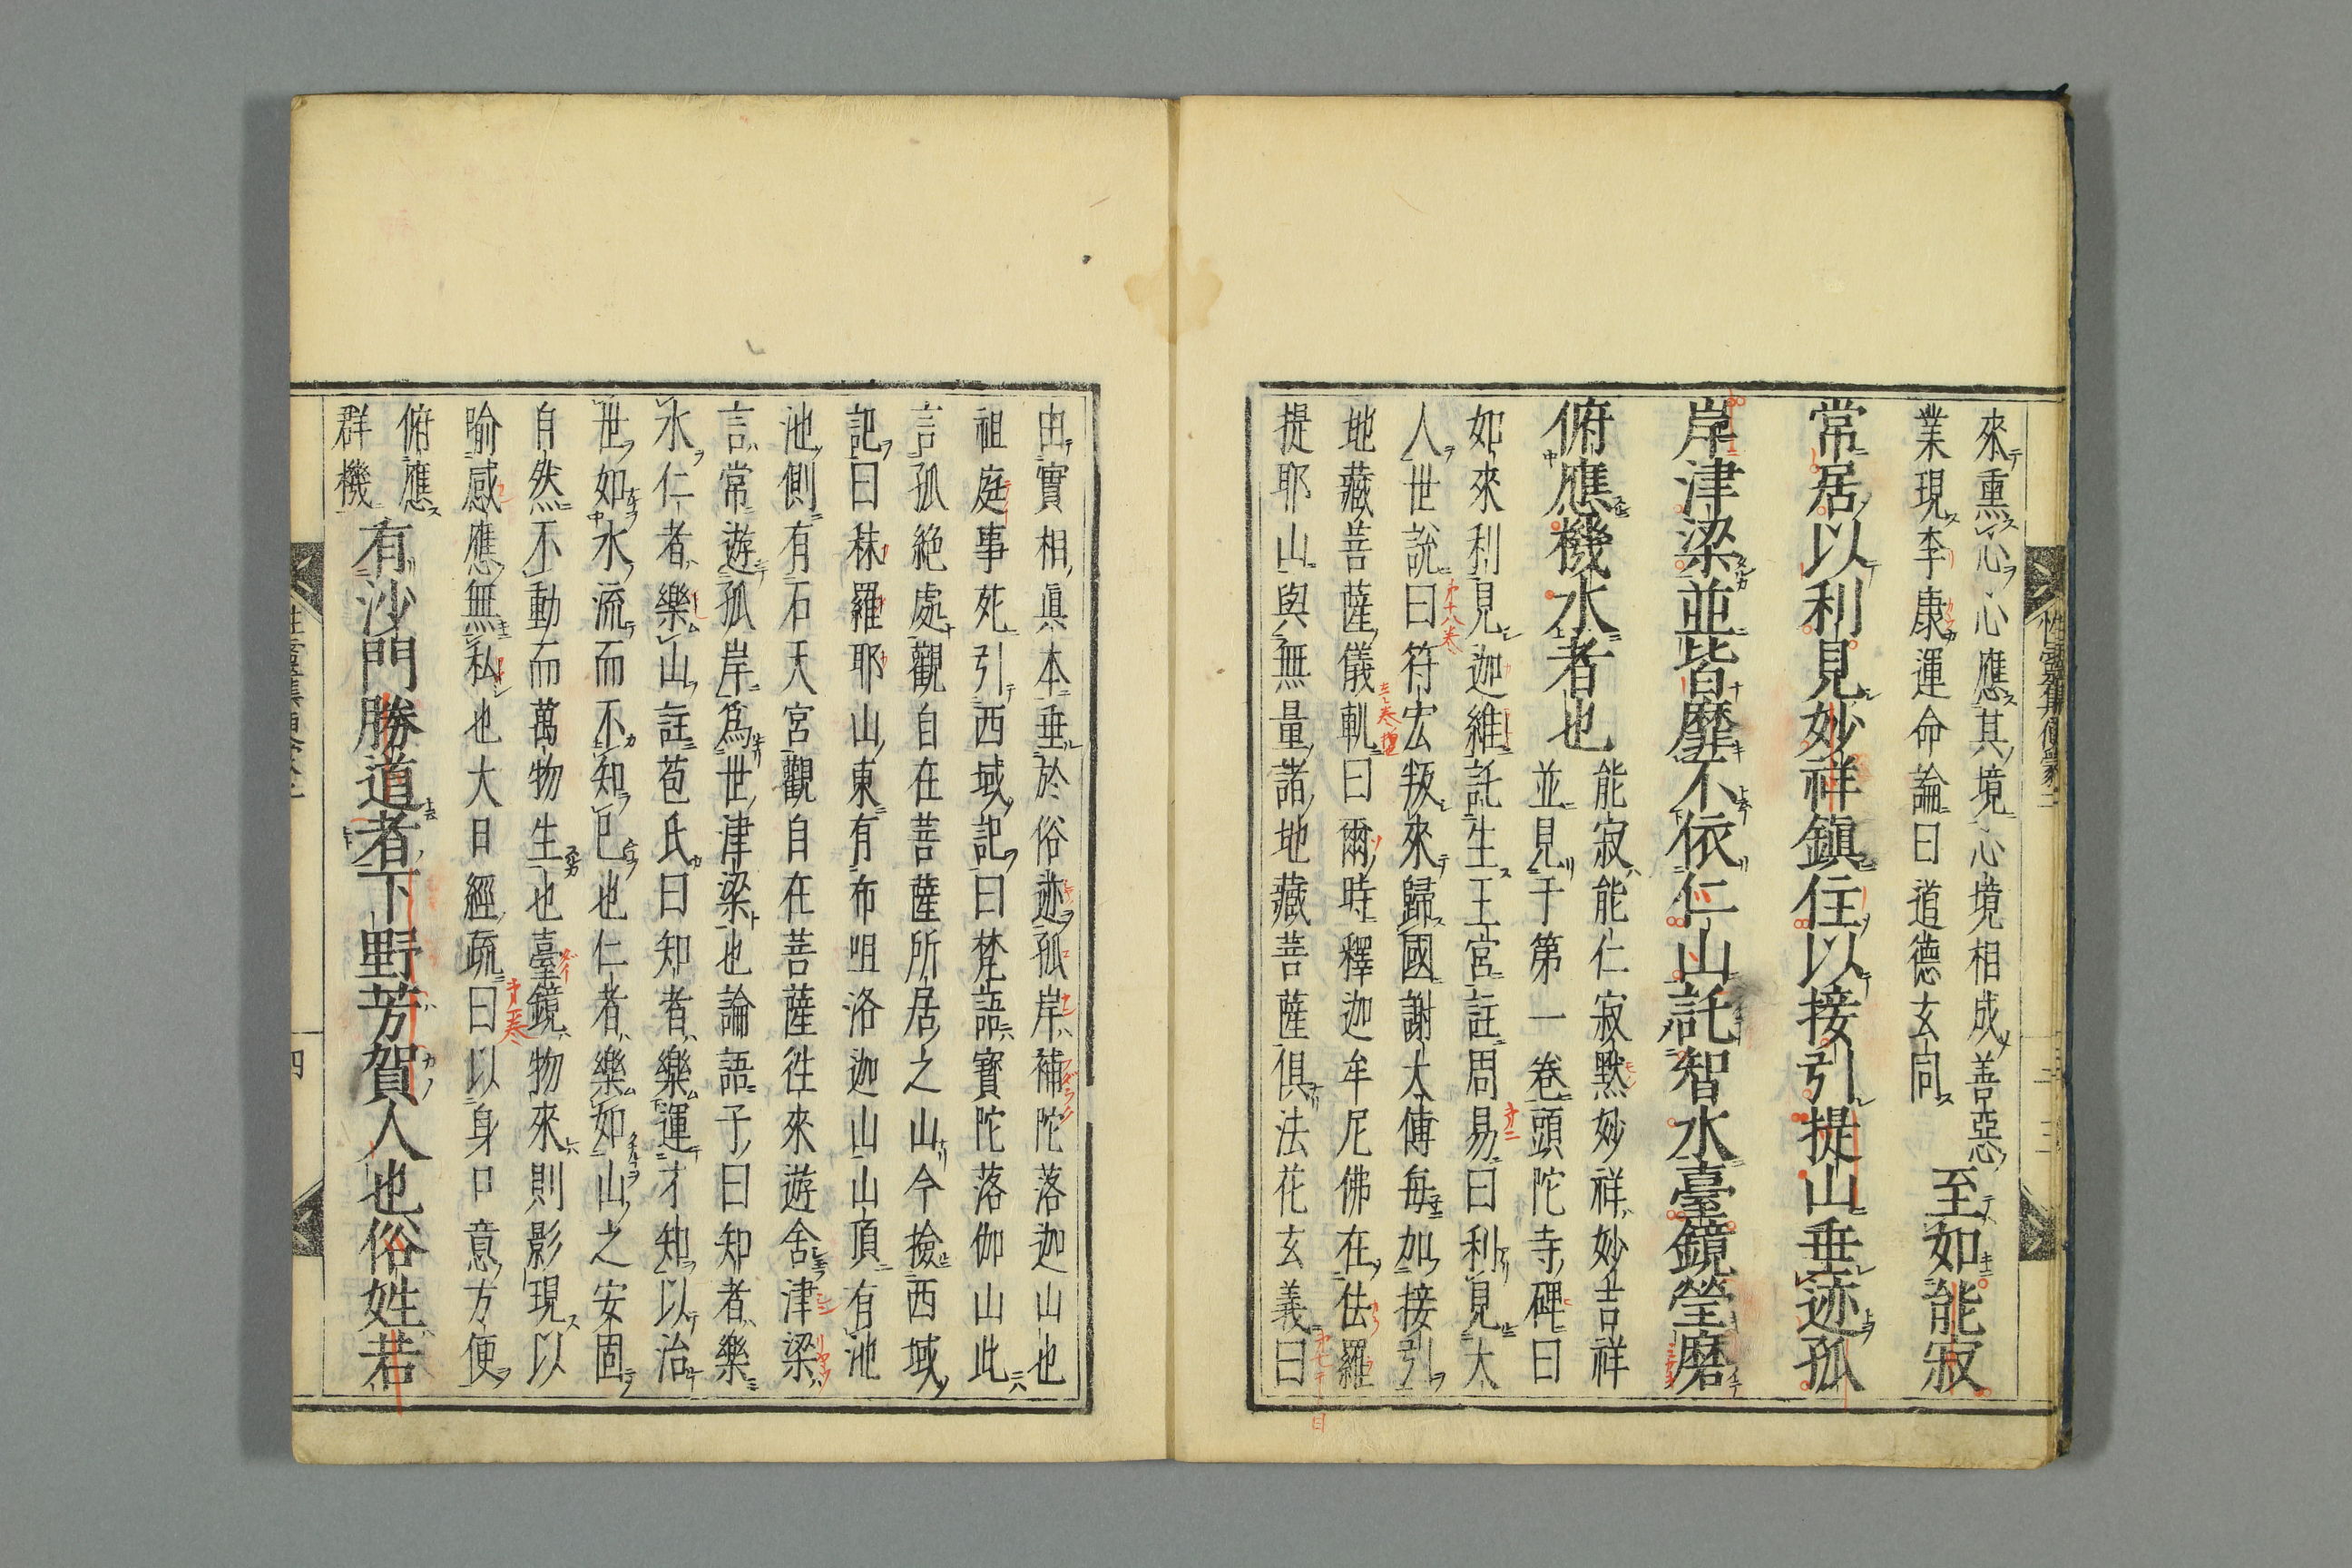 來熏心心應其境心境相成善惡
業現李康運命論曰道德玄同
至如能寂
常居以利見妙祥鎮住以接引提山垂迹孤
岸津梁並皆靡不依仁山託智水臺鏡瑩磨
俯應機水者也
能寂能仁寂默妙祥妙吉祥
並見于第一卷頭陀寺碑曰
如來利見迦維託生王宮註周易曰利見大
人世說曰符宏叛來歸國謝太傅每加接引
地藏菩薩儀軌曰爾時釋迦牟尼佛在佉羅
提耶山與無量諸地藏菩薩俱法花玄義曰
由實相眞本垂於俗迹孤岸補陀落迦山也
祖庭事苑引西域記曰梵語寳陀落伽山此
言孤絶處觀自在菩薩所居之山今撿西域
記曰秣羅耶山東有布呾洛迦山山頂有池
池側有石天宮觀自在菩薩徃來遊舍津梁
言常遊孤岸爲世津梁也論語子曰知者樂
水仁者樂山註苞氏曰知者樂運才知以治
世如水流而不知已也仁者樂如山之安固
自然不動而萬物生也臺鏡物來則影現以
喻感應無私也大日經疏曰以身口意方便
俯應
群機
有沙門勝道者下野芳賀人也俗姓若
四